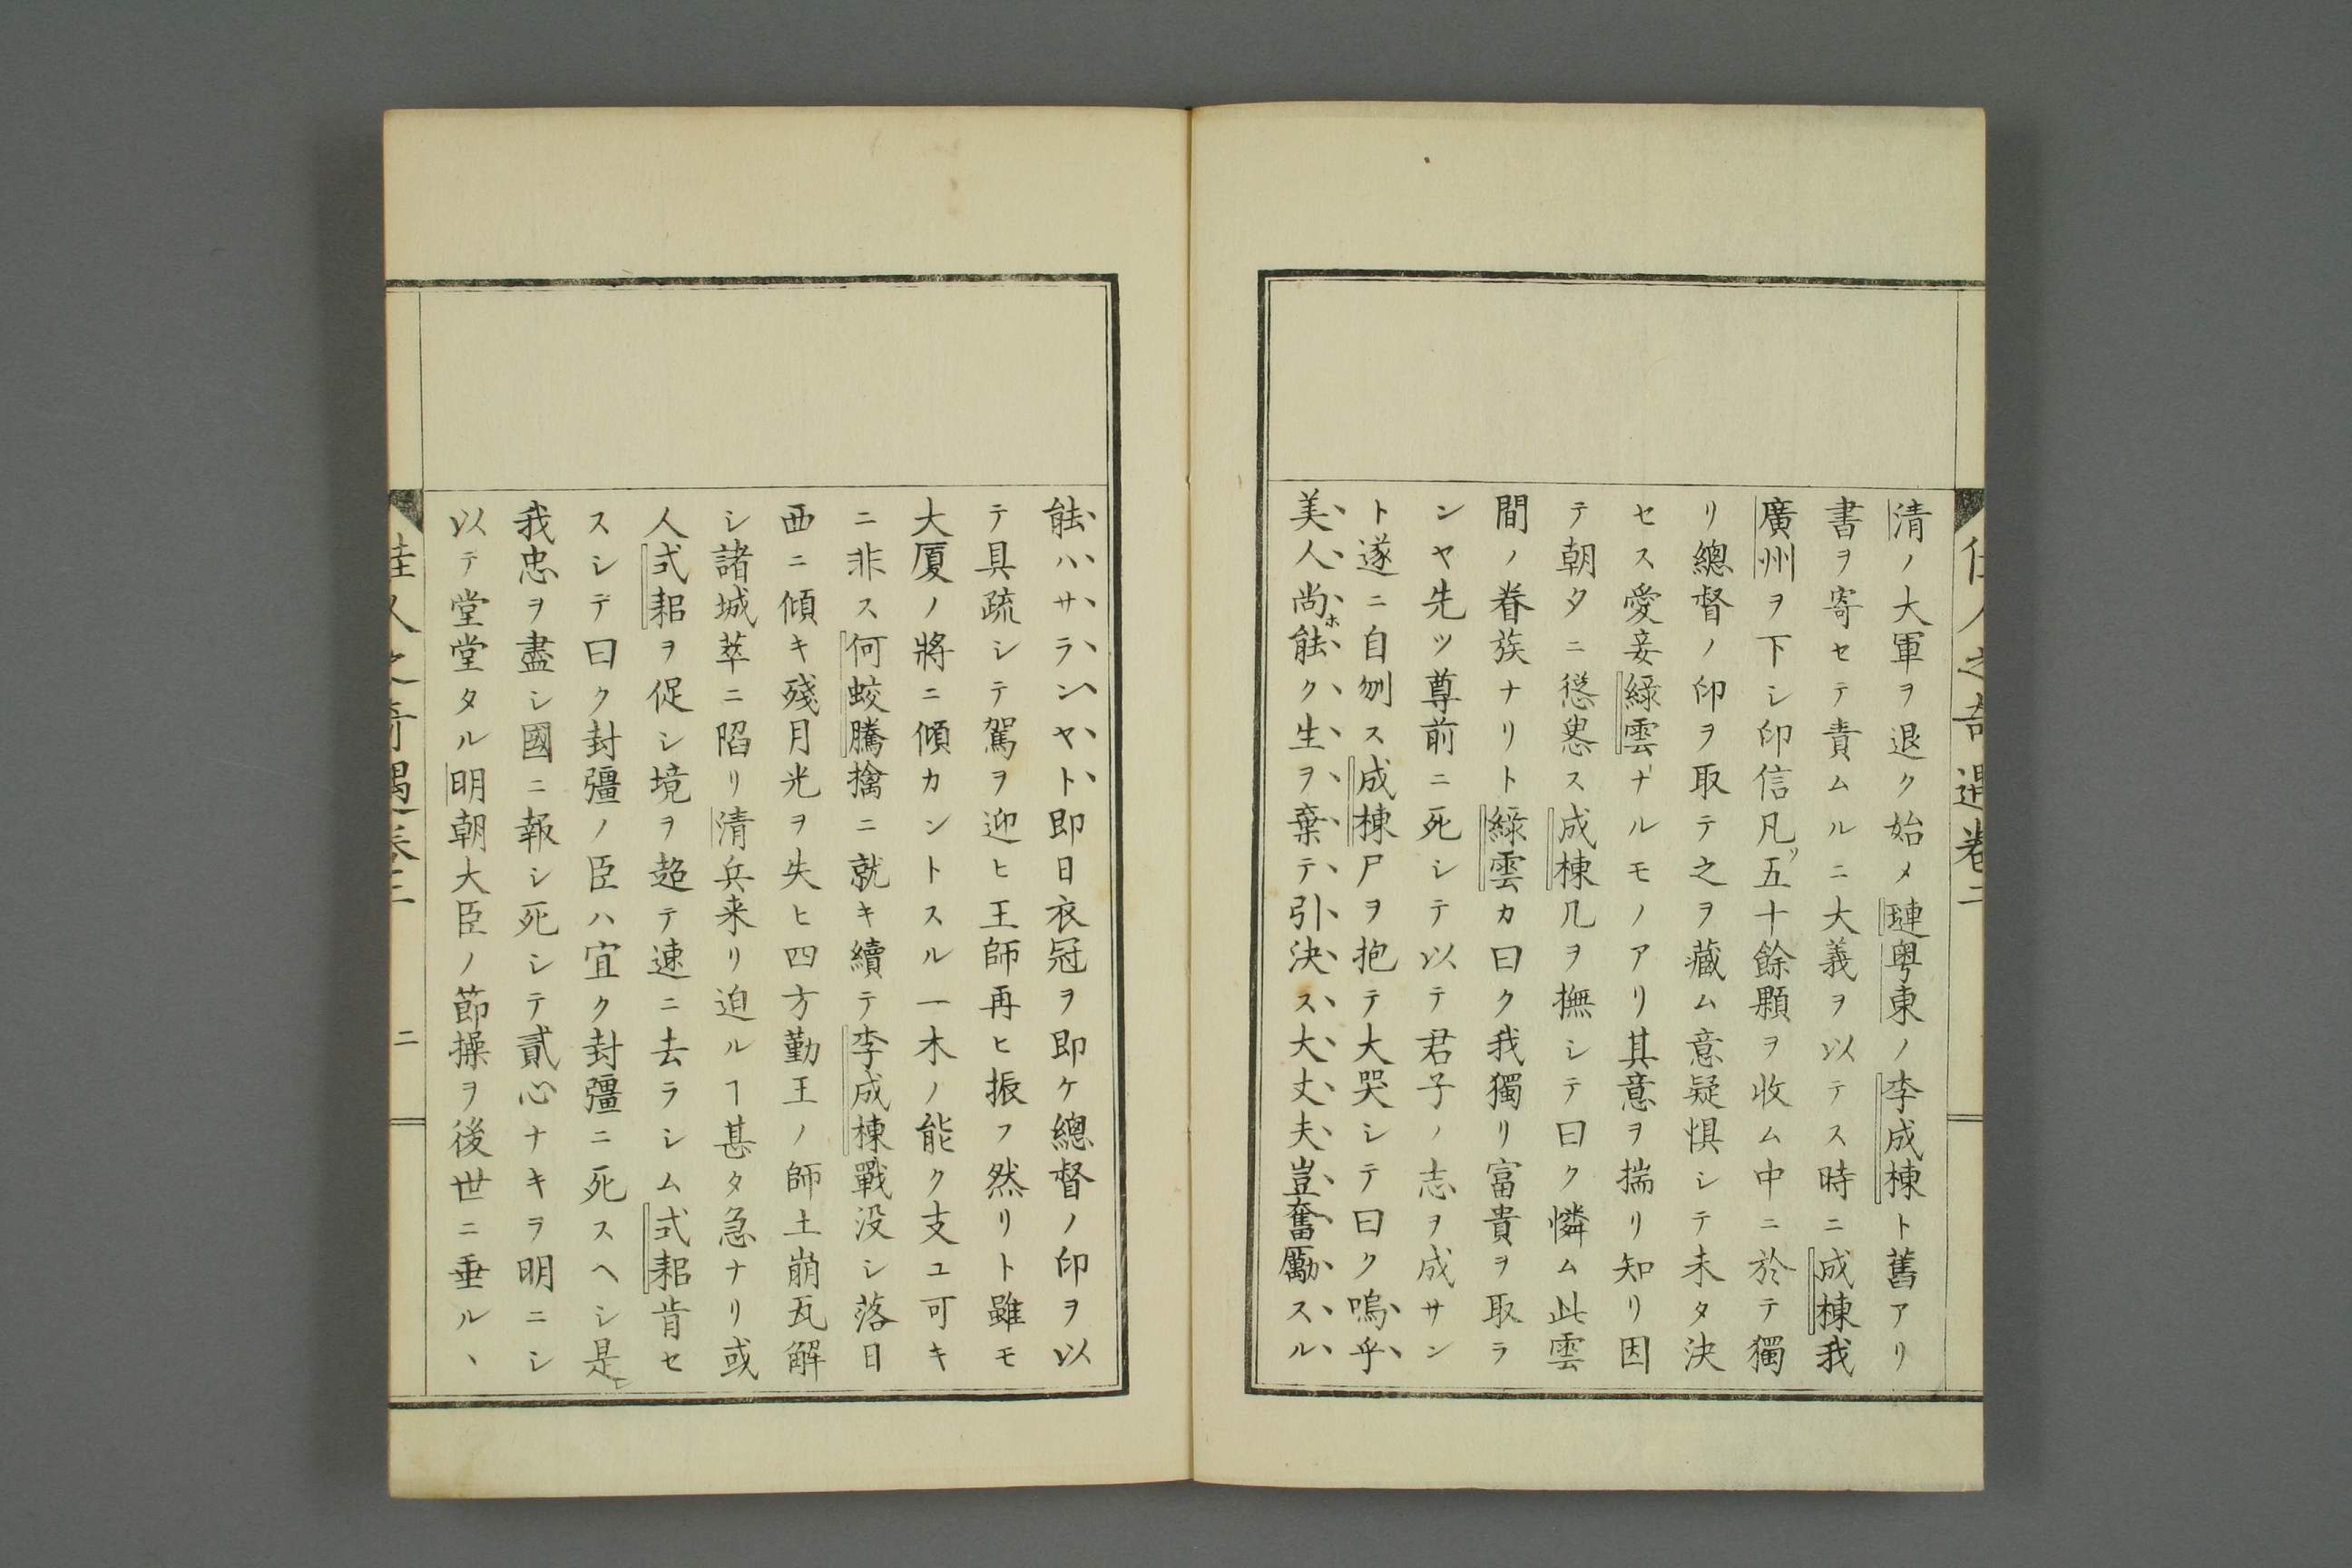 清ノ大軍ヲ退ク始メ璉粤東ノ李成棟ト舊アリ
書ヲ寄セテ責ムルニ大義ヲ以テス時ニ成棟我
廣州ヲ下シ印信凡ソ五十餘顆ヲ收ム中ニ於テ獨
リ總督ノ印ヲ取テ之ヲ藏ム意疑惧シテ未タ決
セス愛妾綠雲ナルモノアリ其意ヲ揣リ知リ因
テ朝夕ニ慫慂ス成棟几ヲ撫シテ曰ク憐ム此雲
間ノ眷族ナリト綠雲カ曰ク我獨リ富貴ヲ取ラ
ンヤ先ツ尊前ニ死シテ以テ君子ノ志ヲ成サン
ト遂ニ自刎ス成棟尸ヲ抱テ大哭シテ曰ク嗚乎
美人尚ホ能ク生ヲ棄テ引決ス大丈夫豈奮勵スル
能ハサランヤト即日衣冠ヲ即ケ總督ノ印ヲ以
テ具疏シテ駕ヲ迎ヒ王師再ヒ振フ然リト雖モ
大厦ノ將ニ傾カントスル一木ノ能ク支ユ可キ
ニ非ス何蛟騰擒ニ就キ續テ李成棟戰没シ落日
西ニ傾キ殘月光ヲ失ヒ四方勤王ノ師土崩瓦解
シ諸城萃ニ陷リ清兵来リ迫ルヿ甚タ急ナリ或
人式耜ヲ促シ境ヲ超テ速ニ去ラシム式耜肯セ
スシテ曰ク封彊ノ臣ハ宜ク封彊ニ死スヘシ是
我忠ヲ盡シ國ニ報シ死シテ貳心ナキヲ明ニシ
以テ堂堂タル明朝大臣ノ節操ヲ後世ニ垂ルヽ
佳人之奇遇卷二
二